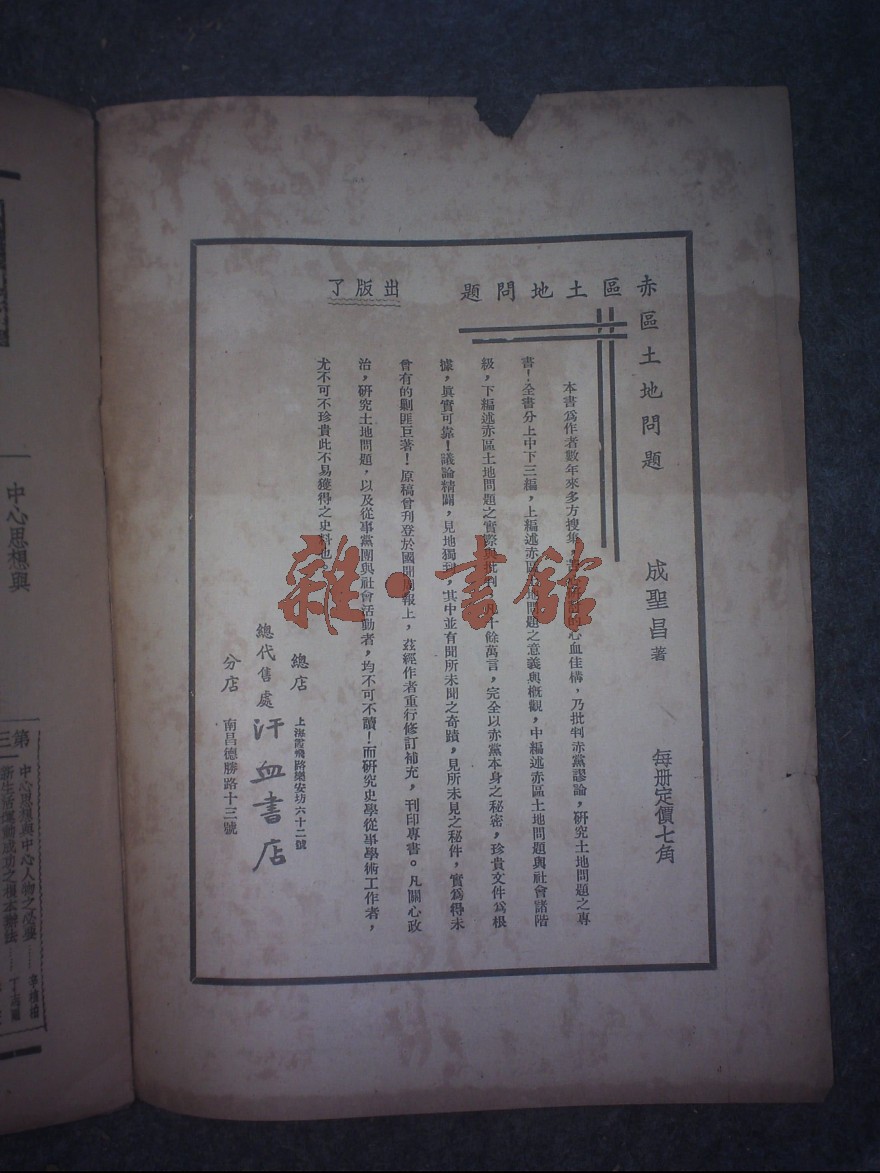 赤區土地問題
出版了
赤區土地問題
成聖昌著
每册定價七角
本書爲作者數年來多方搜集,心血佳構,乃批判赤黨謬論,研究土地問題之專
書!全書分上中下三編,上編述赤區土地問題之意義與概觀,中編述赤區土地問題與社會諸階
級,下編述赤區土地問題之實際與批判,凡十餘萬言,完全以赤黨本身之秘密,珍貴文件爲根
據,眞實可靠!議論精闢,見地獨到,其中並有聞所未聞之奇蹟,見所未見之秘件,實爲得未
曾有的剿匪巨著!原稿曾刊登於國聞週報上,茲經作者重行修訂補充,刊印專書。凡關心政
治,研究土地問題,以及從事黨團與社會活動者,均不可不讀!而研究史學從事學術工作者,
尤不可不珍貴此不易獲得之史料也
總店
上海霞飛路樂安坊六十二號
總代售處 汗血書店
分店
南昌德勝路十三號
雜·書館
中心思想與
第三
中心思想與中心人物之必要……
新生活運動成功之根本辦法……